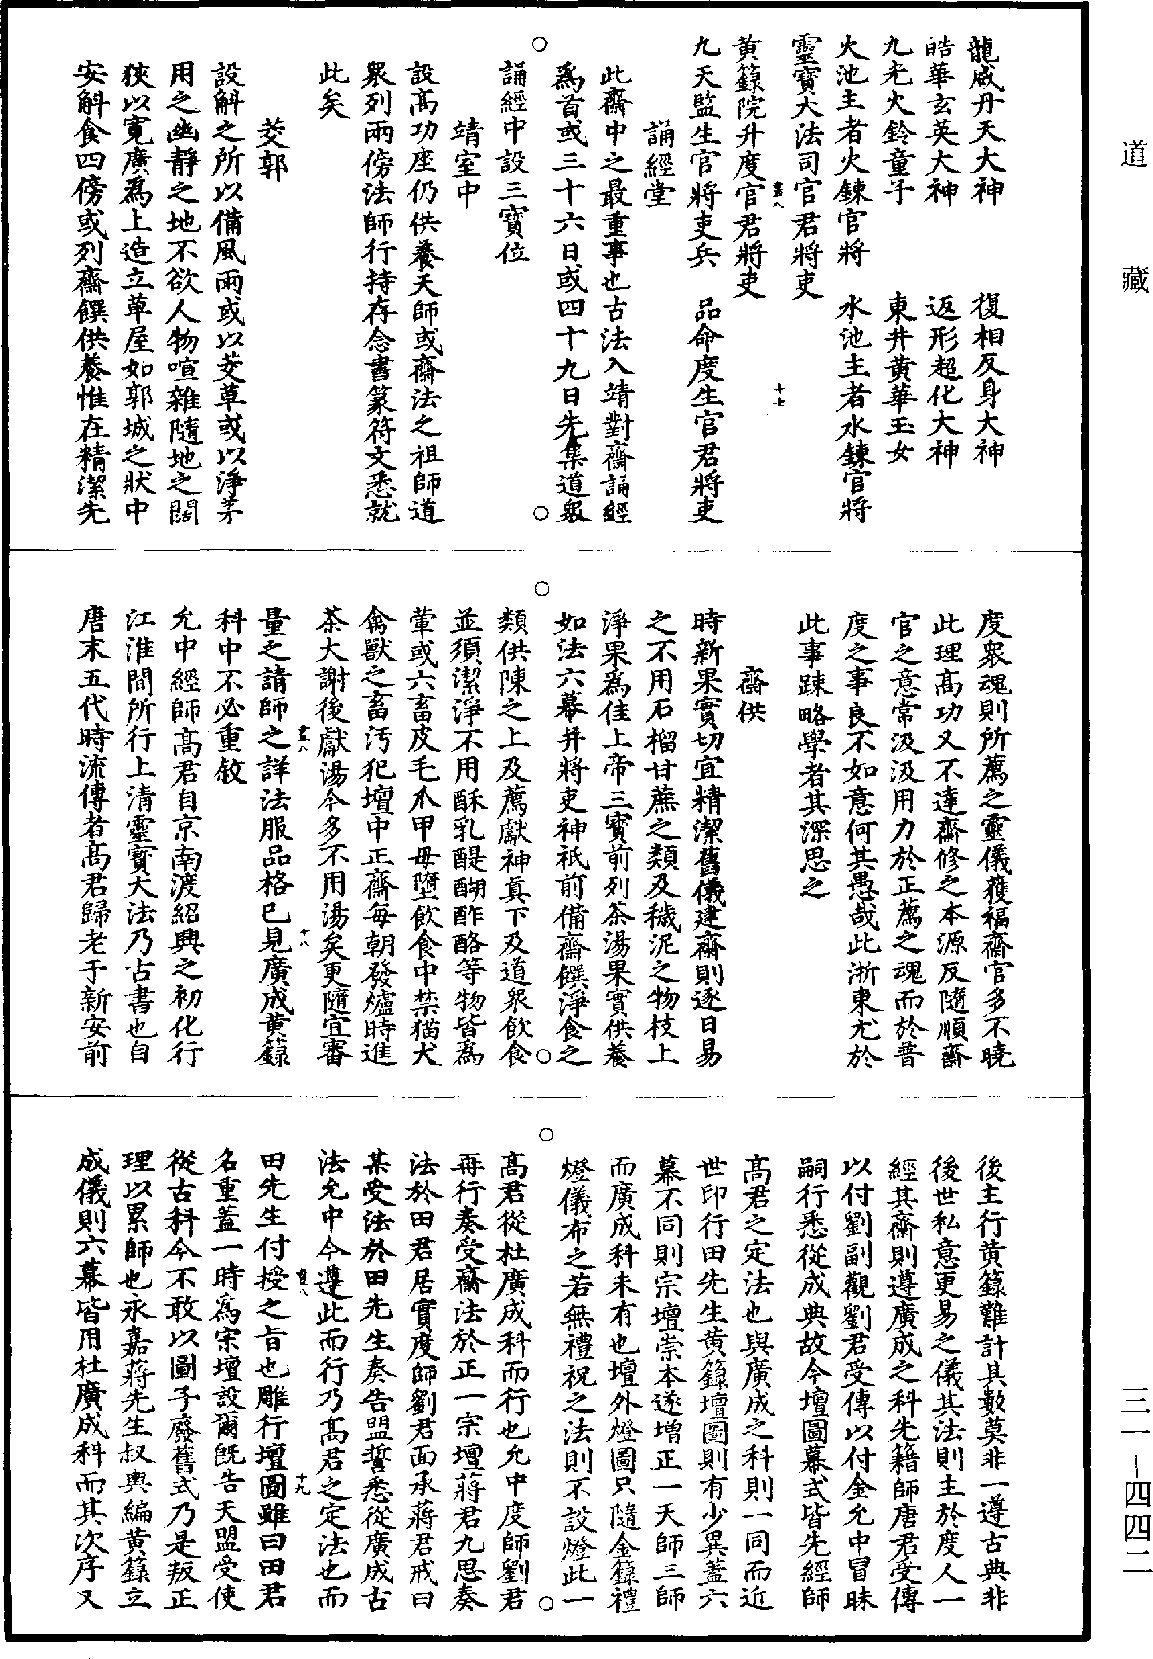 道藏
龍威丹天大神　　復相反身大神
皓華玄英大神　　返形超化大神
九光火鈴童子　　東井黃華玉女
火池主者火鍊官將　水池主者水鍊官將
靈寶大法司官君將吏
黃籙院升度官君將吏
九天監生官將吏兵　品命度生官君將吏
誦經堂
此齋中之最重事也古法入靖對齋誦經
爲首或三十六日或四十九日先集道衆
誦經中設三寶位
靖室中
設高功座仍供養天師或齋法之祖師道
衆列兩傍法師行持存念書篆符文悉就
此矣
茭郭
設斛之所以備風雨或以茭草或以淨茅
用之幽靜之地不欲人物喧雜隨地之闊
狹以寬廣爲上造立草屋如郭城之狀中
安斛食四傍或列齋饌供養惟在精潔先
度衆魂則所薦之靈儀獲福齋官多不曉
此理高功又不達齋修之本源反隨順齋
官之意常汲汲用力於正薦之魂而於普
度之事良不如意何其愚哉此浙東尤於
此事踈略學者其深思之
齋供
時新果實切宜精潔舊儀建齋則逐日易
之不用石榴甘蔗之類及穢泥之物枝上
淨果爲佳上帝三寶前列茶湯果實供養
如法六幕并將吏神祇前備齋饌淨食之
類供陳之上及薦獻神真下及道衆飲食
並須潔淨不用酥乳醍醐酢酪等物皆爲
葷或六畜皮毛爪甲毋墮飲食中禁猫犬
禽獸之畜汚犯壇中正齋每朝發爐時進
茶大謝後獻湯今多不用湯矣更隨宜審
量之請師之詳法服品格已見廣成黃籙
科中不必重敘
允中經師高君自京南渡紹興之初化行
江淮間所行上清靈寶大法乃古書也自
唐末五代時流傳者高君歸老于新安前
後主行黃籙難計其數莫非一遵古典非
後世私意更易之儀其法則主於度人一
經其齋則遵廣成之科先籍師唐君受傳
以付劉副觀劉君受傳以付金允中冒昧
嗣行悉從成典故今壇圖幕式皆先經師
高君之定法也與廣成之科則一同而近
世印行田先生黃籙壇圖則有少異蓋六
幕不同則宗壇崇本遂增正一天師三師
而廣成科未有也壇外燈圖只隨金籙禮
燈儀布之若無禮祝之法則不設燈此一
高君從杜廣成科而行也允中度師劉君
再行奏受齋法於正一宗壇蔣君九思奏
法於田君居實度師劉君面承蔣君戒曰
某受法於田先生奏告盟誓悉從廣成古
法允中今遵此而行乃高君之定法也而
田先生付授之旨也雕行壇圖雖曰田君
名重蓋一時爲宗壇設爾旣告天盟受使
從古科今不敢以圖子廢舊式乃是叛正
理以累師也永嘉蔣先生叔輿編黃籙立
成儀則六幕皆用杜廣成科而其次序又
三一－四四二